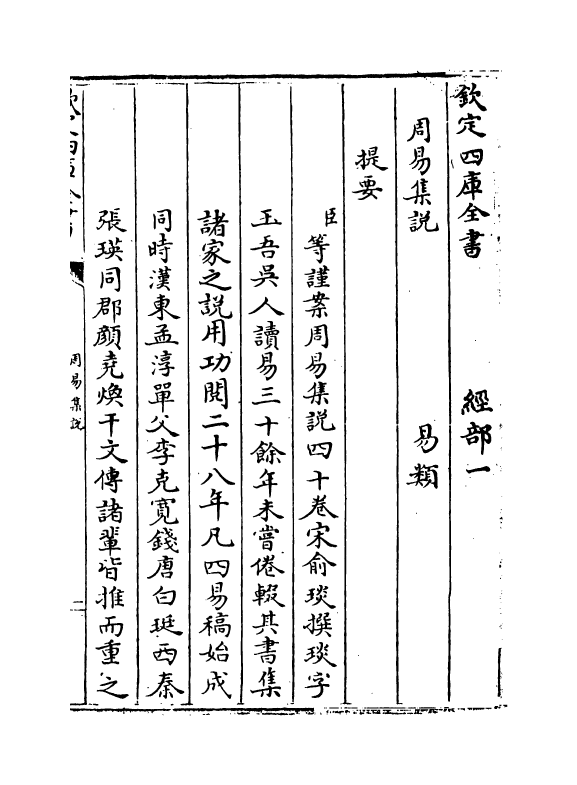 欽定四庫全書　經部一
周易集説　易類
提要
臣等謹案周易集説四十卷宋俞琰撰琰字
玉吾吳人讀易三十餘年未嘗倦輟其書集
諸家之説用功閱二十八年凡四易稿始成
同時漢東孟淳單父李克寛錢唐白珽西秦
張瑛同郡顔堯煥干文傳諸輩皆推而重之
欽定四庫全書
周易集説